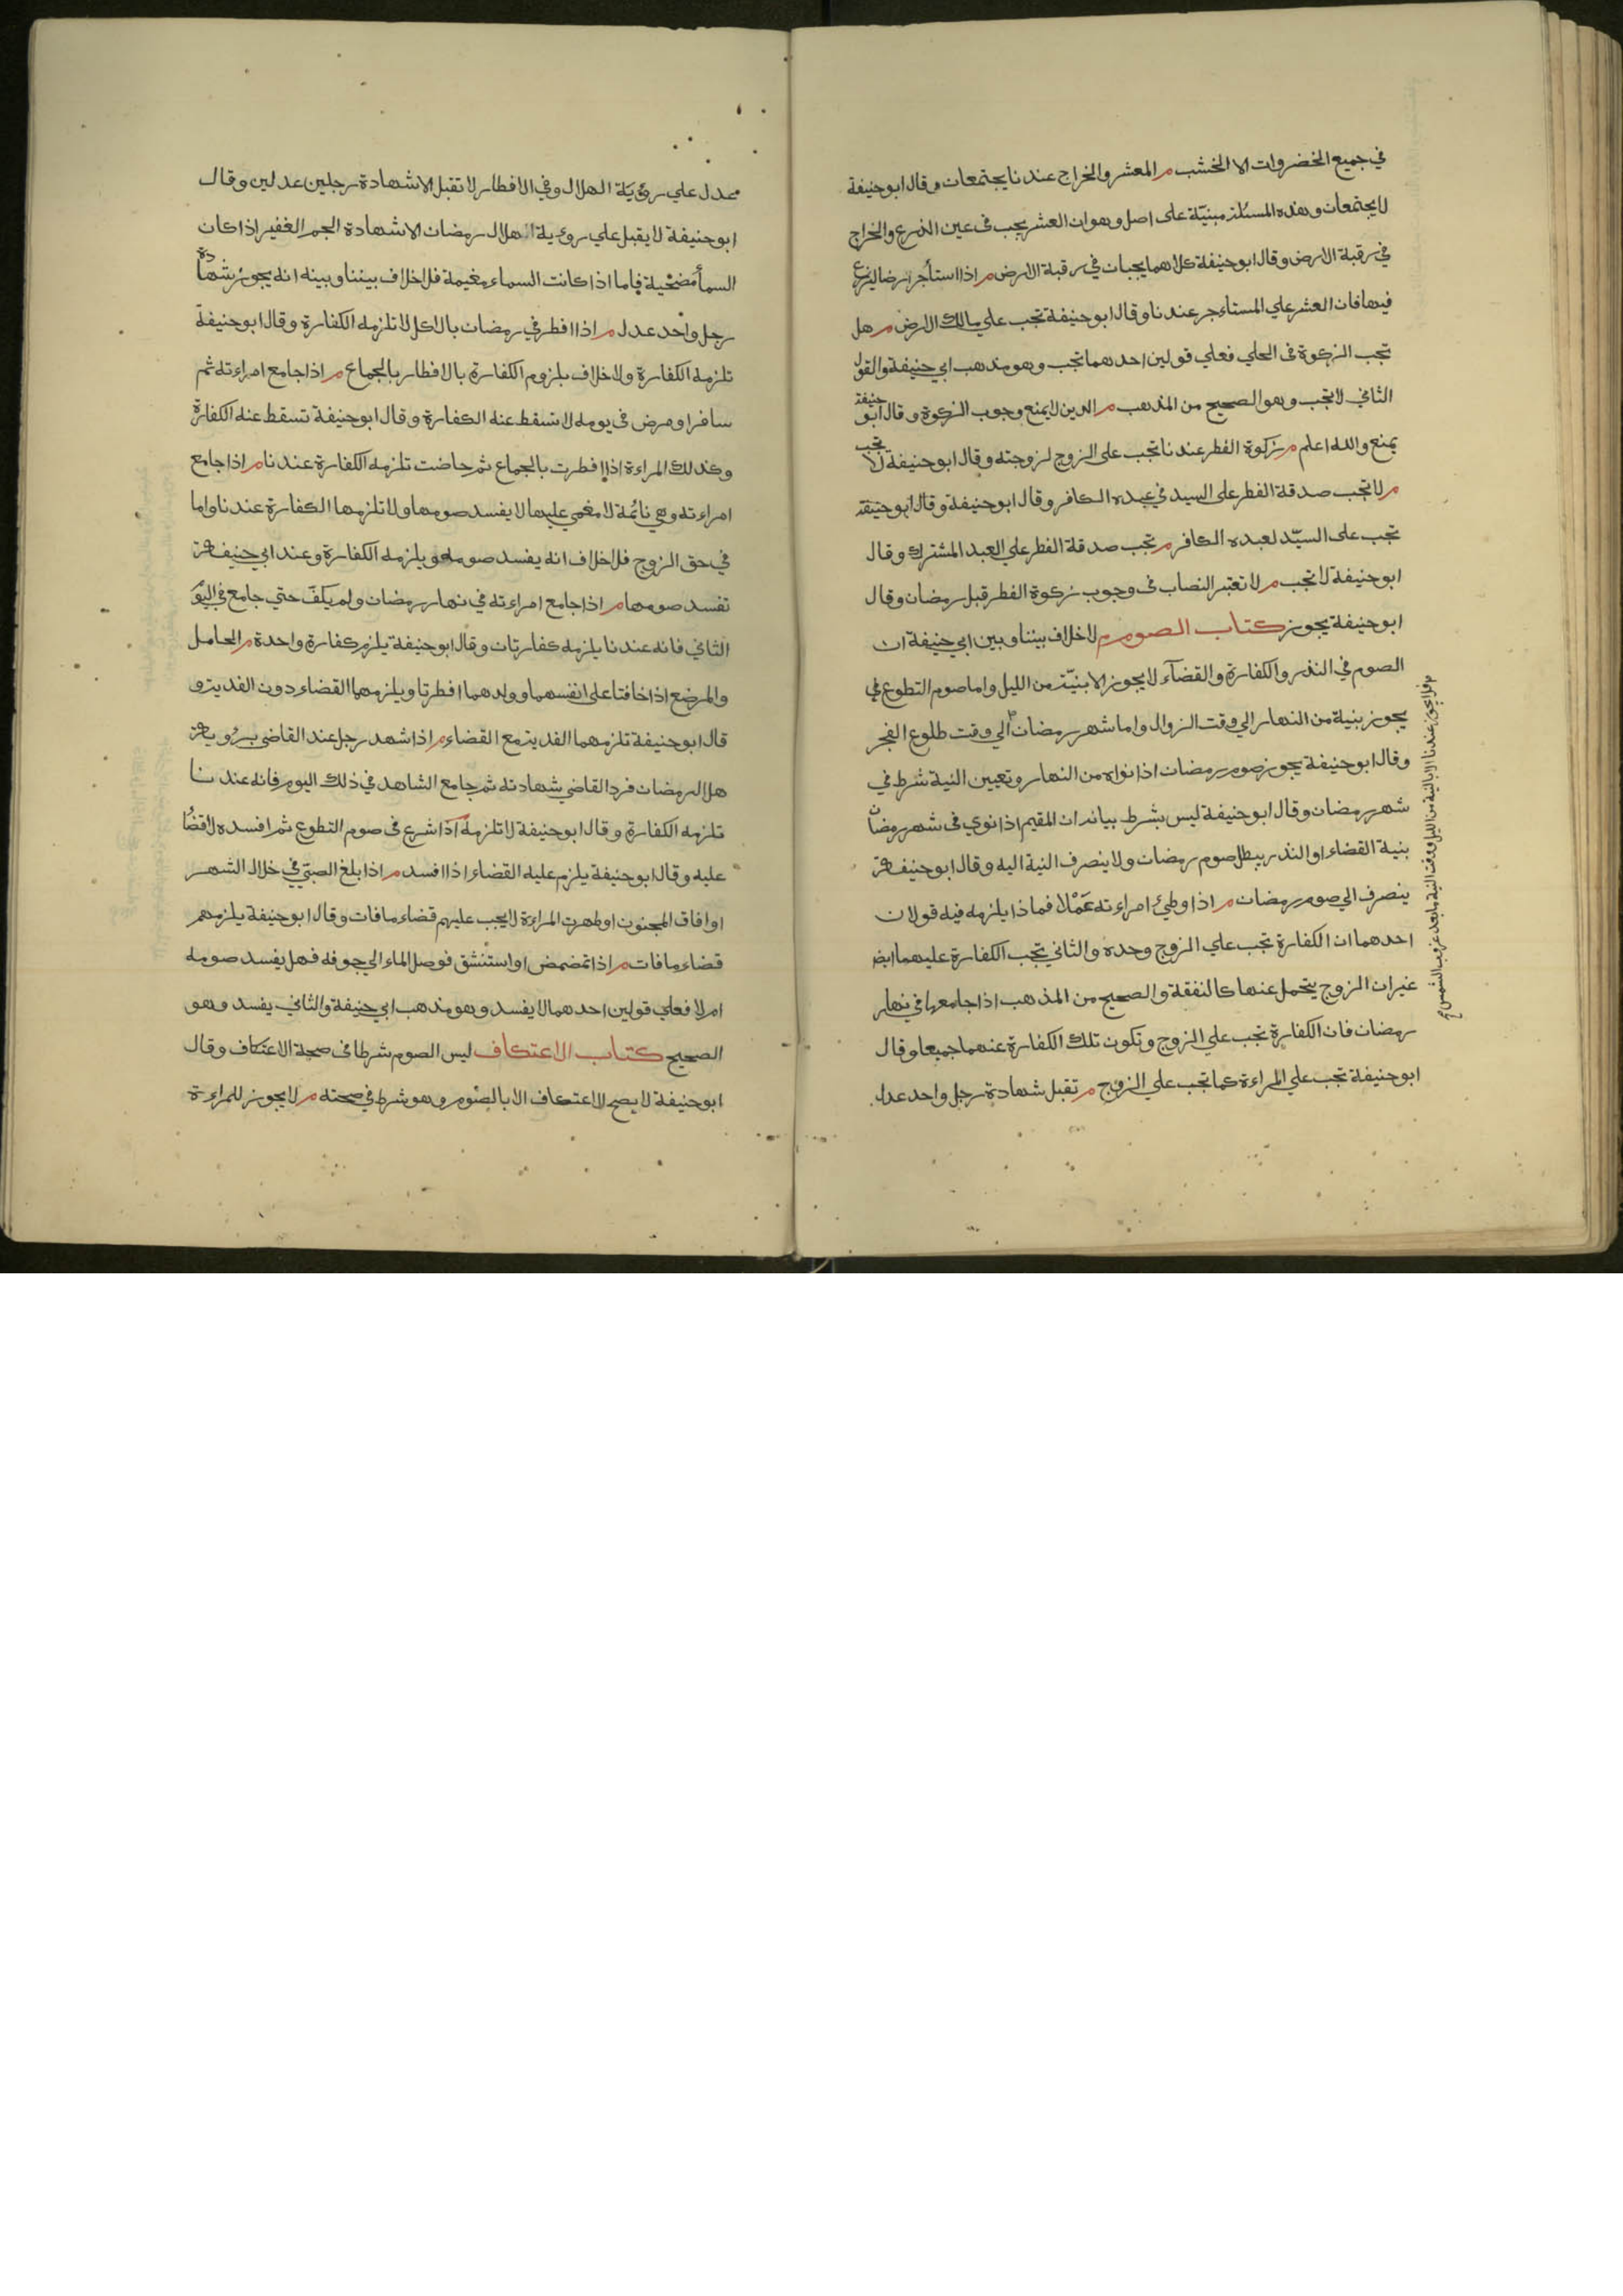 في جميع الخضروات الا الخشب م المعشر والخراج عندنا يجتمعان وقال ابوحنيفة
لا يجتمعان وهذه المسئلة مبنيّة على اصل وهو ان العشر يجب في عين الزرع والخراج
في رقبة الارض وقال ابوحنيفة كلاهما يجبان في رقبة الارض م اذا استأجر ارضا ليزرع
فيها فان العشر علي المستاءجر عندنا وقال ابوحنيفة تجب علي مالك الارض م هل
تجب الزكوة في الحلي فعلي قولين احدهما تجب وهو مذهب ابي حنيفة والقول
الثاني لا تجب وهو الصحيح من المذهب م الدين لا يمنع وجوب الزكوة وقال ابو حنيفة
يمنع والله اعلم م زكوة الفطر عندنا تجب على الزوج لزوجته وقال ابوحنيفة لا تجب
م لا تجب صدقة الفطر على السيد في عبده الكافر وقال ابوحنيفة وقال ابوحنيفة
تجب على السيّد لعبده الكافر م تجب صدقة الفطر علي العبد المشترك وقال
ابوحنيفة لا تجب م لا تعتبر النصاب في وجوب زكوة الفطر قبل رمضان وقال
ابوحنيفة يجوز كتاب الصوم م لا خلاف بيننا وبين ابي حنيفة ان
الصوم في النذر والكفارة والقضآء لا يجوز الا بنيّة من الليل واما صوم التطوع في
يجوز بنية من النهار الي وقت الزوال واما شهر رمضان الي وقت طلوع الفجر
وقال ابوحنيفة يجوز صوم رمضان اذا نواه من النهار وتعيين النية شرط في
شهر رمضان وقال ابوحنيفة ليس بشرط بيانه ان المقيم اذا نوي في شهر رمضان
بنية القضاء او النذر يبطل صوم رمضان ولا ينصرف النية اليه وقال ابوحنيفة
ينصرف الي صوم رمضان م اذا وطئ امراءته عَمْدًا فماذا يلزمه فيه قولان
احدهما ان الكفارة تجب علي الزوج وحده والثاني تجب الكفارة عليهما ايضا
غير ان الزوج يتحمل عنها كالنفقة والصحيح من المذهب اذا جامعها في نهار
رمضان فان الكفارة تجب علي الزوج وتكون تلك الكفارة عنهما جميعا وقال
ابوحنيفة تجب علي المراءة كما تجب علي الزوج م تقبل شهادة رجل واحد عدل
فلا يجوز عندنا الا بالنية من الليل ووقت النية ما بعد غروب الشمس
عدل علي رؤية الهلال وفي الافطار لا تقبل الا شهادة رجلين عدلين وقال
ابوحنيفة لا يقبل علي روءية هلال رمضان الا شهادة الجم الغفير اذا كان
السمأ مضحية فاما اذا كانت السماء مغيمة فلا خلاف بيننا وبينه انه يجوز شهادة
رجل واحد عدل م اذا افطر في رمضان بالاكل لا تلزمه الكفارة وقال ابوحنيفة
تلزمه الكفارة ولا خلاف بلزوم الكفارة بالافطار بالجماع م اذا جامع امراءته ثم
سافر او مرض في يومه لا تسقط عنه الكفارة وقال ابوحنيفة تسقط عنه الكفارة
وكذلك المراءة اذا افطرت بالجماع ثم حاضت تلزمه الكفارة عندنا م اذا جامع
امراءته وهي نائمة لا مغمي عليها لا يفسد صومها ولا تلزمها الكفارة عندنا واما
في حق الزوج فلا خلاف انه يفسد صومه ويلزمه الكفارة وعند ابي حنيفة
تفسد صومها م اذا جامع امراءته في نهار رمضان ولم يكفّ حتي جامع في اليوم
الثاني فانه عندنا يلزمه كفارتان وقال ابوحنيفة يلزم كفارة واحدة م الحامل
والمرضع اذا خافتا على انفسهما وولدهما افطرتا ويلزمهما القضاء دون الفدية و
قال ابوحنيفة تلزمهما الفدية مع القضاء م اذا شهد رجل عند القاضي برؤية
هلال رمضان فرد القاضي شهادته ثم جامع الشاهد في ذلك اليوم فانه عندنا
تلزمه الكفارة وقال ابوحنيفة لا تلزمه اذا شرع في صوم التطوع ثم افسده لا قضاء
عليه وقال ابوحنيفة يلزم عليه القضاء اذا افسد م اذا بلغ الصبيّ في خلال الشهر
او افاق المجنون او طهرت المراءة لا يجب عليهم قضاء ما فات وقال ابوحنيفة يلزمهم
قضاء ما فات م اذا تمضمض او استنشق فوصل الماء الي جوفه فهل يفسد صومه
ام لا فعلي قولين احدهما لا يفسد وهو مذهب ابي حنيفة والثاني يفسد وهو
الصحيح كتاب الاعتكاف ليس الصوم شرطا في صحة الاعتكاف وقال
ابوحنيفة لا يصح الاعتكاف الا بالصوم وهو شرط في صحته م لا يجوز للمراءة